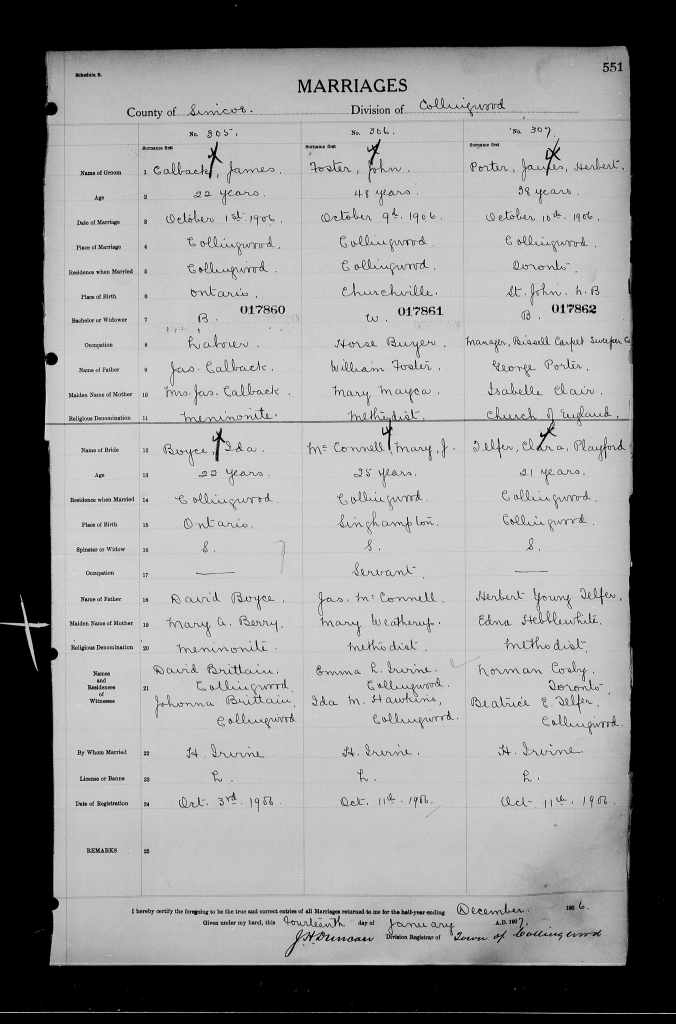 Schedule B.
551
MARRIAGES
County of Simcoe. Division of Collingwood
No. 305. No. 306. No. 307
Surname first Surname first Surname first
Name of Groom 1 Calback, James. Foster, John. Porter, James, Herbert.
Age 2 22 years. 48 years. 38 years.
Date of Marriage 3 October 1st 1906. October 9th 1906. October 10th 1906.
Place of Marriage 4 Collingwood. Collingwood. Collingwood.
Residence when Married 5 Collingwood. Collingwood. Toronto.
Place of Birth 6 Ontario. Churchville. St. John N.B
017860 017861 017862
Bachelor or Widower 7 B. W. B.
Occupation 8 Laborer. Horse Buyer. Manager, Bissell Carpet Sweeper Co
Name of Father 9 Jas. Calback. William Foster. George Porter.
Maiden Name of Mother 10 Mrs. Jas. Calback. Mary Mayca. Isabelle Clair.
Religious Denomination 11 Meninonite. Methodist. Church of England.
Name of Bride 12 Boyce, Ida. McConnell, Mary, J. Telfer, Clara, Playford
Age 13 22 years. 25 years. 21 years.
Residence when Married 14 Collingwood. Collingwood. Collingwood.
Place of Birth 15 Ontario. Singhampton. Collingwood.
Spinster or Widow 16 S. S. S.
Occupation 17 — Servant. —
Name of Father 18 David Boyce. Jas. McConnell. Herbert Young Telfer.
Maiden Name of Mother 19 Mary A. Berry. Mary Weatherup. Edna Hebblewhite.
Religious Denomination 20 Meninonite. Methodist. Methodist.
Names and Residences of Witnesses 21 David Brittain, Emma L. Irvine. Norman Cosby.
Collingwood Collingwood. Toronto.
Johonna Brittain, Ida M. Hawkins, Beatrice E. Telfer.
Collingwood Collingwood. Collingwood.
By Whom Married 22 H. Irvine H. Irvine. H. Irvine
License or Banns 23 L. L. L.
Date of Registration 24 Oct. 3rd 1906. Oct. 11th 1906. Oct 11th 1906.
REMARKS 25
I hereby certify the foregoing to be the true and correct entries of all Marriages returned to me for the half-year ending December 1906.
Given under my hand, this Fourteenth day of January A.D. 1907.
J.H. Duncan Division Registrar of Town of Collingwood